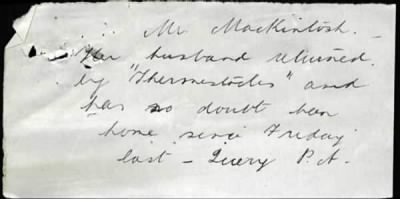 Mr. Mackintosh. –
Her husband returned
by "Thermestocles" and
has no doubt been
home since Friday
last – Query P. A.